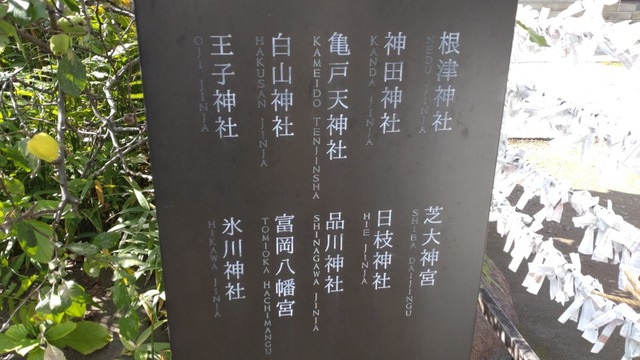 根津神社
NEDU JINJA
神田神社
KANDA JINJA
亀戸天神社
KAMEIDO TENJINSHA
白山神社
HAKUSAN JINJA
王子神社
OJI JINJA
芝大神宮
SHIBA DAIJINGU
日枝神社
HIE JINJA
品川神社
SHINAGAWA JINJA
富岡八幡宮
TOMIOKA HACHIMANGU
氷川神社
HIKAWA JINJA